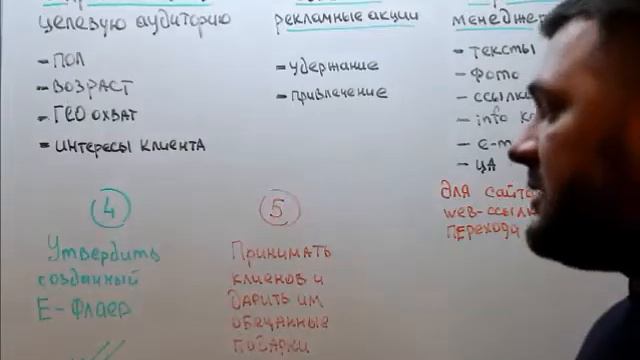 целевую аудиторию
- ПОЛ
- ВОЗРАСТ
- ГЕО ОХВАТ
- ИНТЕРЕСЫ КЛИЕНТА
рекламные акции
- удержание
- привлечение
- тексты
- фото
- ссылки
- info
- ЦА
для сайта
web-ссылк
4
Утвердить
созданный
Е-Флаер
5
Принимать
клиенов и
дарить им
обещанные
подарки